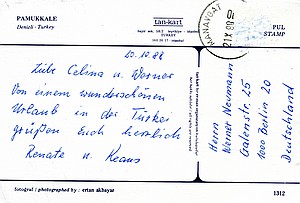 PAMUKKALE
Denizli - Turkey
tan-kart
TURKEY
MANAVGAT
PUL
STAMP
20.10.88
Liebe Celina u. Werner
Von einem wunderschönen
Urlaub in der Türkei
grüßen Euch herzlich
Renate u. Klaus
Herrn
Werner Neumann
Galenstr. 25
1000 Berlin 20
Deutschland
fotoğraf / photographed by : ertan akbayar
1312